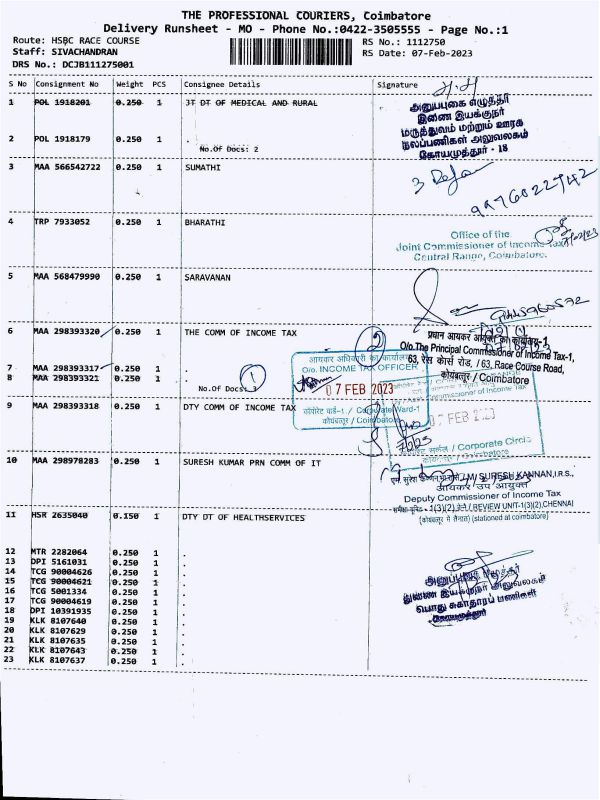 THE PROFESSIONAL COURIERS, Coimbatore
Delivery Runsheet - MO - Phone No.:0422-3505555 - Page No.:1
Route: HSBC RACE COURSE RS No.: 1112750
Staff: SIVACHANDRAN RS Date: 07-Feb-2023
DRS No.: DCJB111275001
S No Consignment No Weight PCS Consignee Details Signature
1 POL 1918201 0.250 1 JT DT OF MEDICAL AND RURAL
அனுப்புகை எழுத்தர்
இணை இயக்குநர்
மருத்துவம் மற்றும் ஊரக
நலப்பணிகள் அலுவலகம்
கோயமுத்தூர் - 18
2 POL 1918179 0.250 1 .
No.Of Docs: 2
3 MAA 566542722 0.250 1 SUMATHI
9976022742
4 TRP 7933052 0.250 1 BHARATHI
Office of the
Joint Commissioner of Income Tax
Central Range, Coimbatore.
5 MAA 568479990 0.250 1 SARAVANAN
6 MAA 298393320 0.250 1 THE COMM OF INCOME TAX
2
प्रधान आयकर आयुक्त का कार्यालय-1
O/o.The Principal Commissioner of Income Tax-1,
63, रेस कोर्स रोड, / 63, Race Course Road,
कोयंबतूर / Coimbatore
7 MAA 298393317 0.250 1 .
8 MAA 298393321 0.250 1 .
No.Of Docs: 3
1
आयकर अधिकारी का कार्यालय
O/o. INCOME TAX OFFICER
07 FEB 2023
कॉर्पोरेट वार्ड-1 / Corporate Ward-1
कोयंबतूर / Coimbatore
9 MAA 298393318 0.250 1 DTY COMM OF INCOME TAX
07 FEB 2023
सर्कल / Corporate Circle
कोयंबतूर / Coimbatore
10 MAA 298978283 0.250 1 SURESH KUMAR PRN COMM OF IT
SURESH KANNAN, I.R.S.,
आयकर उप आयुक्त
Deputy Commissioner of Income Tax
1(3)(2) चेन्नै / REVIEW UNIT-1(3)(2),CHENNAI
(कोयंबतूर में तैनात) (stationed at coimbatore)
11 HSR 2635040 0.150 1 DTY DT OF HEALTHSERVICES
12 MTR 2282064 0.250 1 .
13 DPI 5161031 0.250 1 .
14 TCG 90004626 0.250 1 .
15 TCG 90004621 0.250 1 .
16 TCG 5001334 0.250 1 .
17 TCG 90004619 0.250 1 .
18 DPI 10391935 0.250 1 .
19 KLK 8107640 0.250 1 .
20 KLK 8107629 0.250 1 .
21 KLK 8107635 0.250 1 .
22 KLK 8107643 0.250 1 .
23 KLK 8107637 0.250 1 .
அனுப்புகை எழுத்தர்
துணை இயக்குநர் அலுவலகம்
பொது சுகாதாரப் பணிகள்
கோயமுத்தூர்